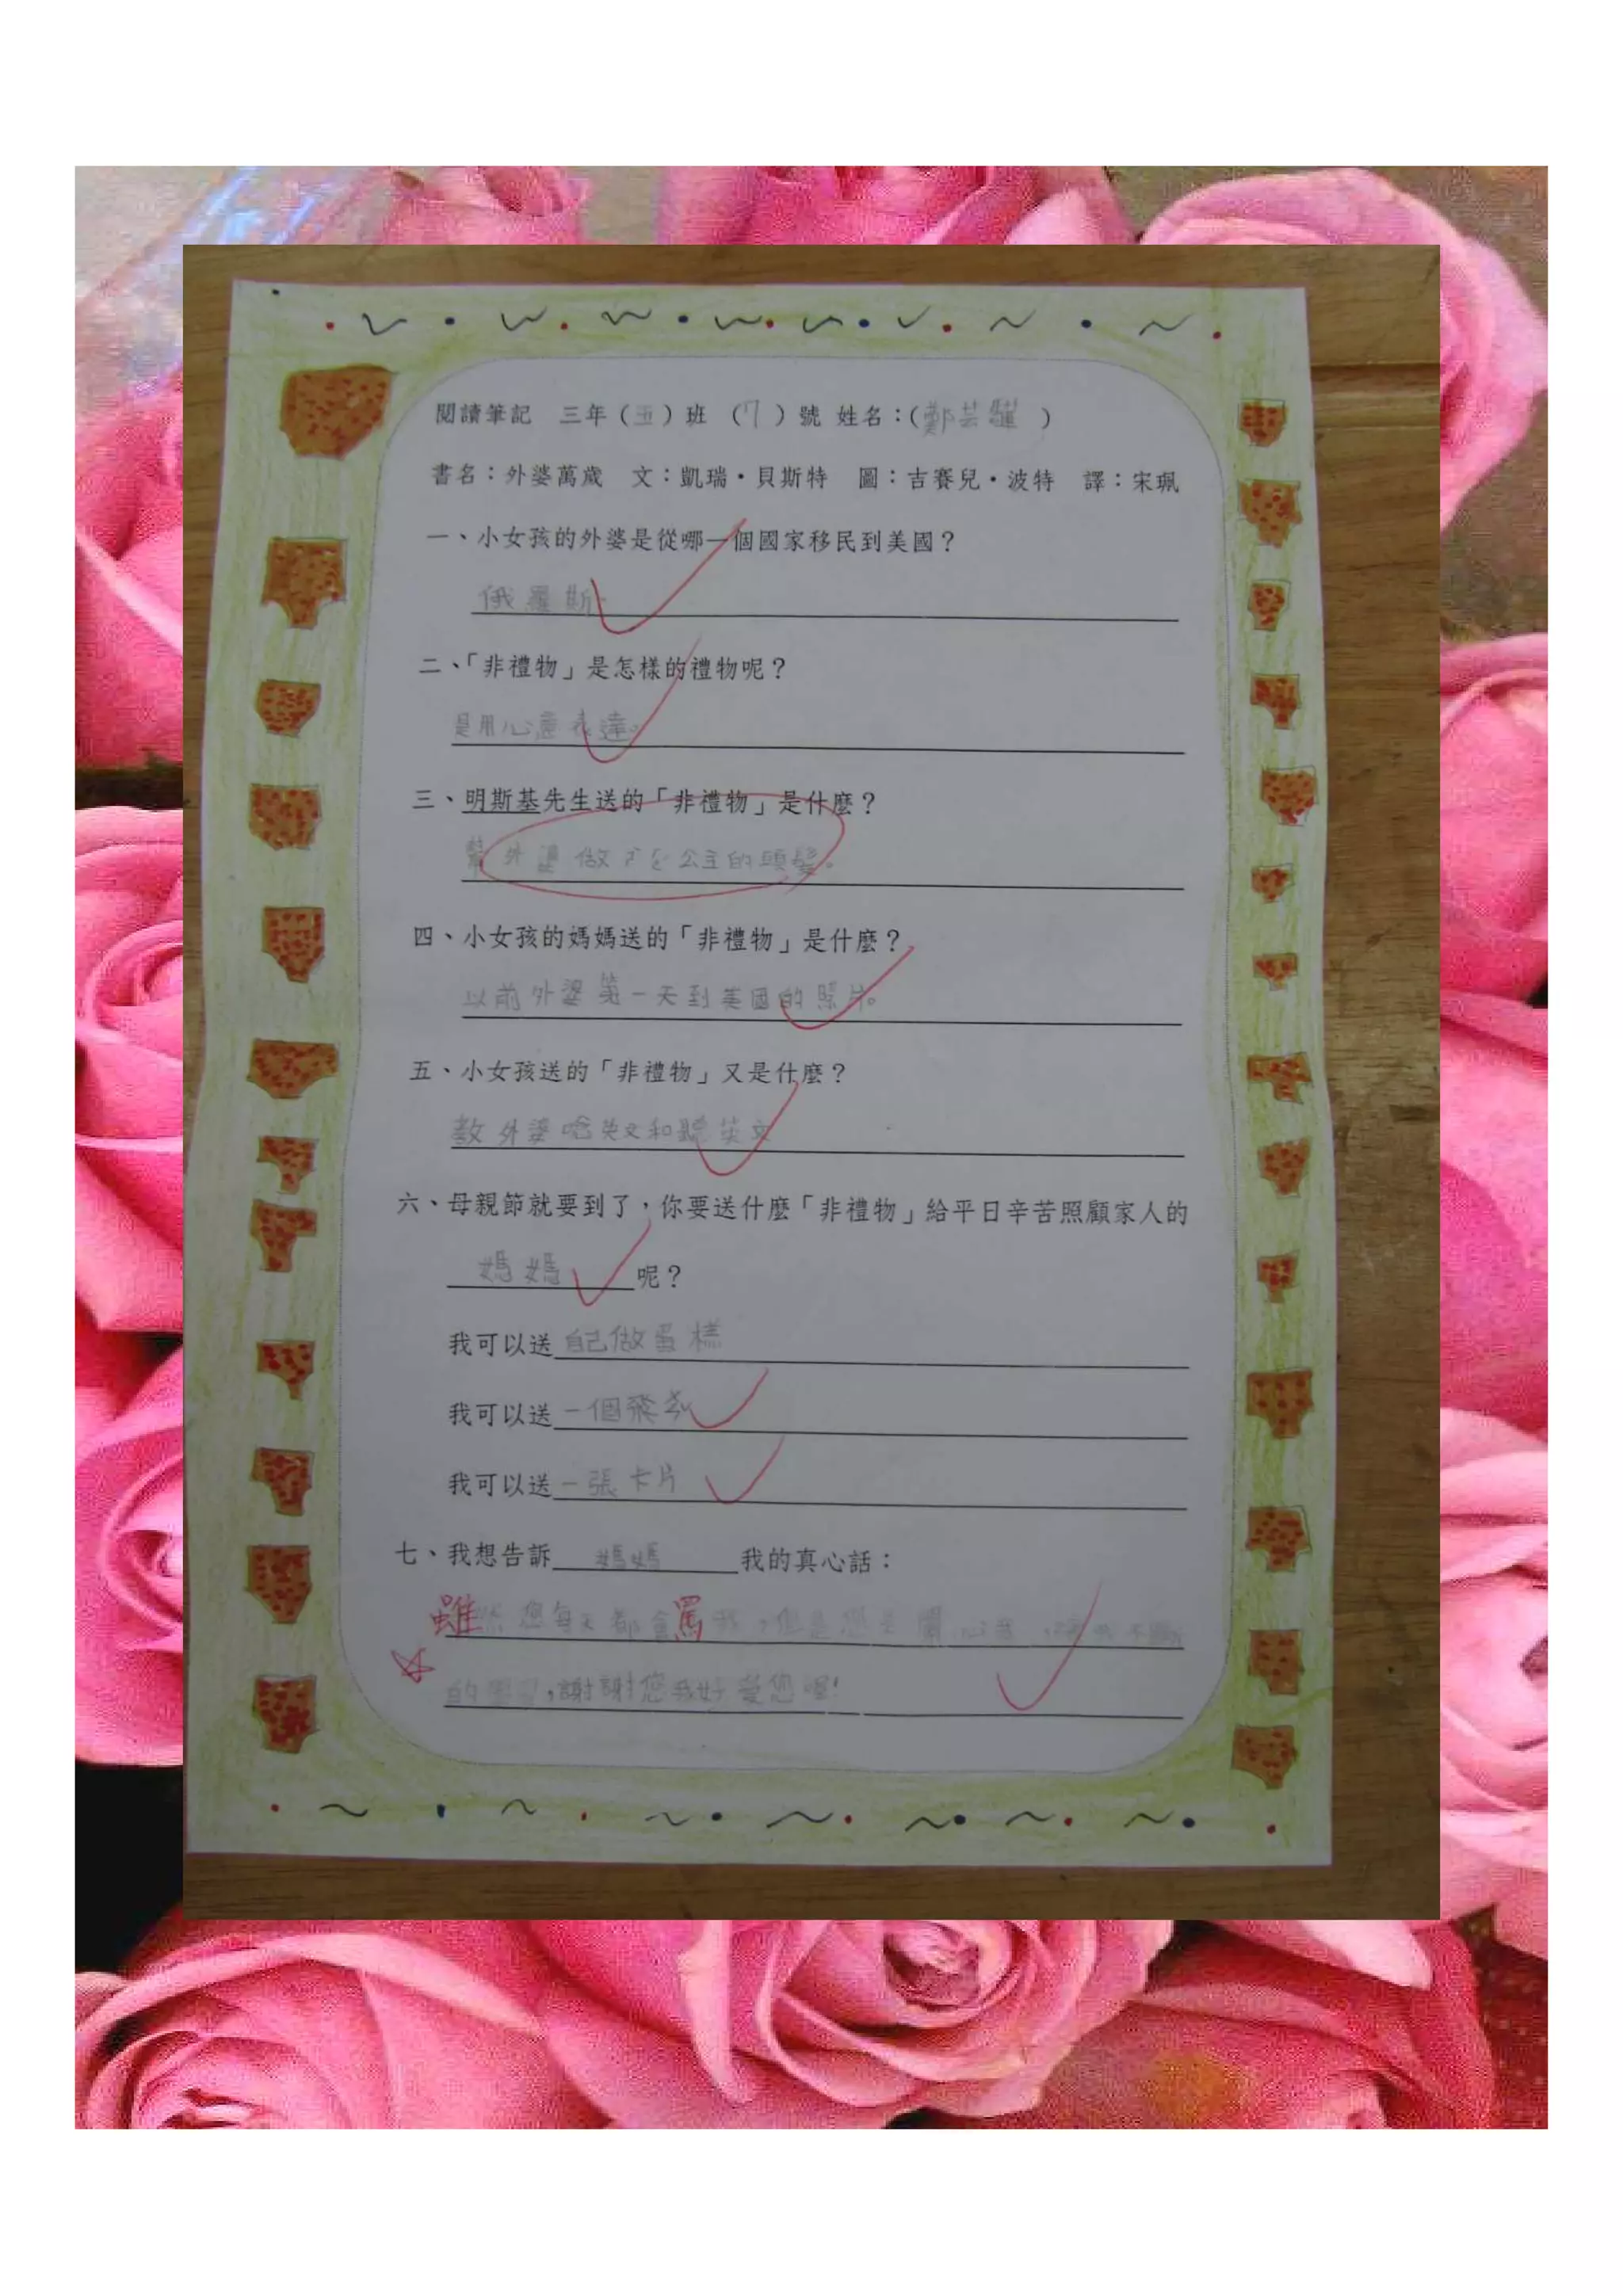 閱讀筆記 三年(五)班 (7)號 姓名:(鄭芸 )
書名:外婆萬歲 文:凱瑞・貝斯特 圖:吉賽兒・波特 譯:宋珮
一、小女孩的外婆是從哪一個國家移民到美國?
俄羅斯
二、「非禮物」是怎樣的禮物呢?
是用心意表達。
三、明斯基先生送的「非禮物」是什麼?
幫外婆做 公主的頭髮。
四、小女孩的媽媽送的「非禮物」是什麼?
以前外婆第一天到美國的照片。
五、小女孩送的「非禮物」又是什麼?
教外婆唸英文和聽英文
六、母親節就要到了,你要送什麼「非禮物」給平日辛苦照顧家人的
媽媽 呢?
我可以送 自己做蛋糕
我可以送 一個飛
我可以送 一張卡片
七、我想告訴 媽媽 我的真心話:
雖然您每天都會罵我,但是您 關心我
的學習,謝謝您我好愛您喔!